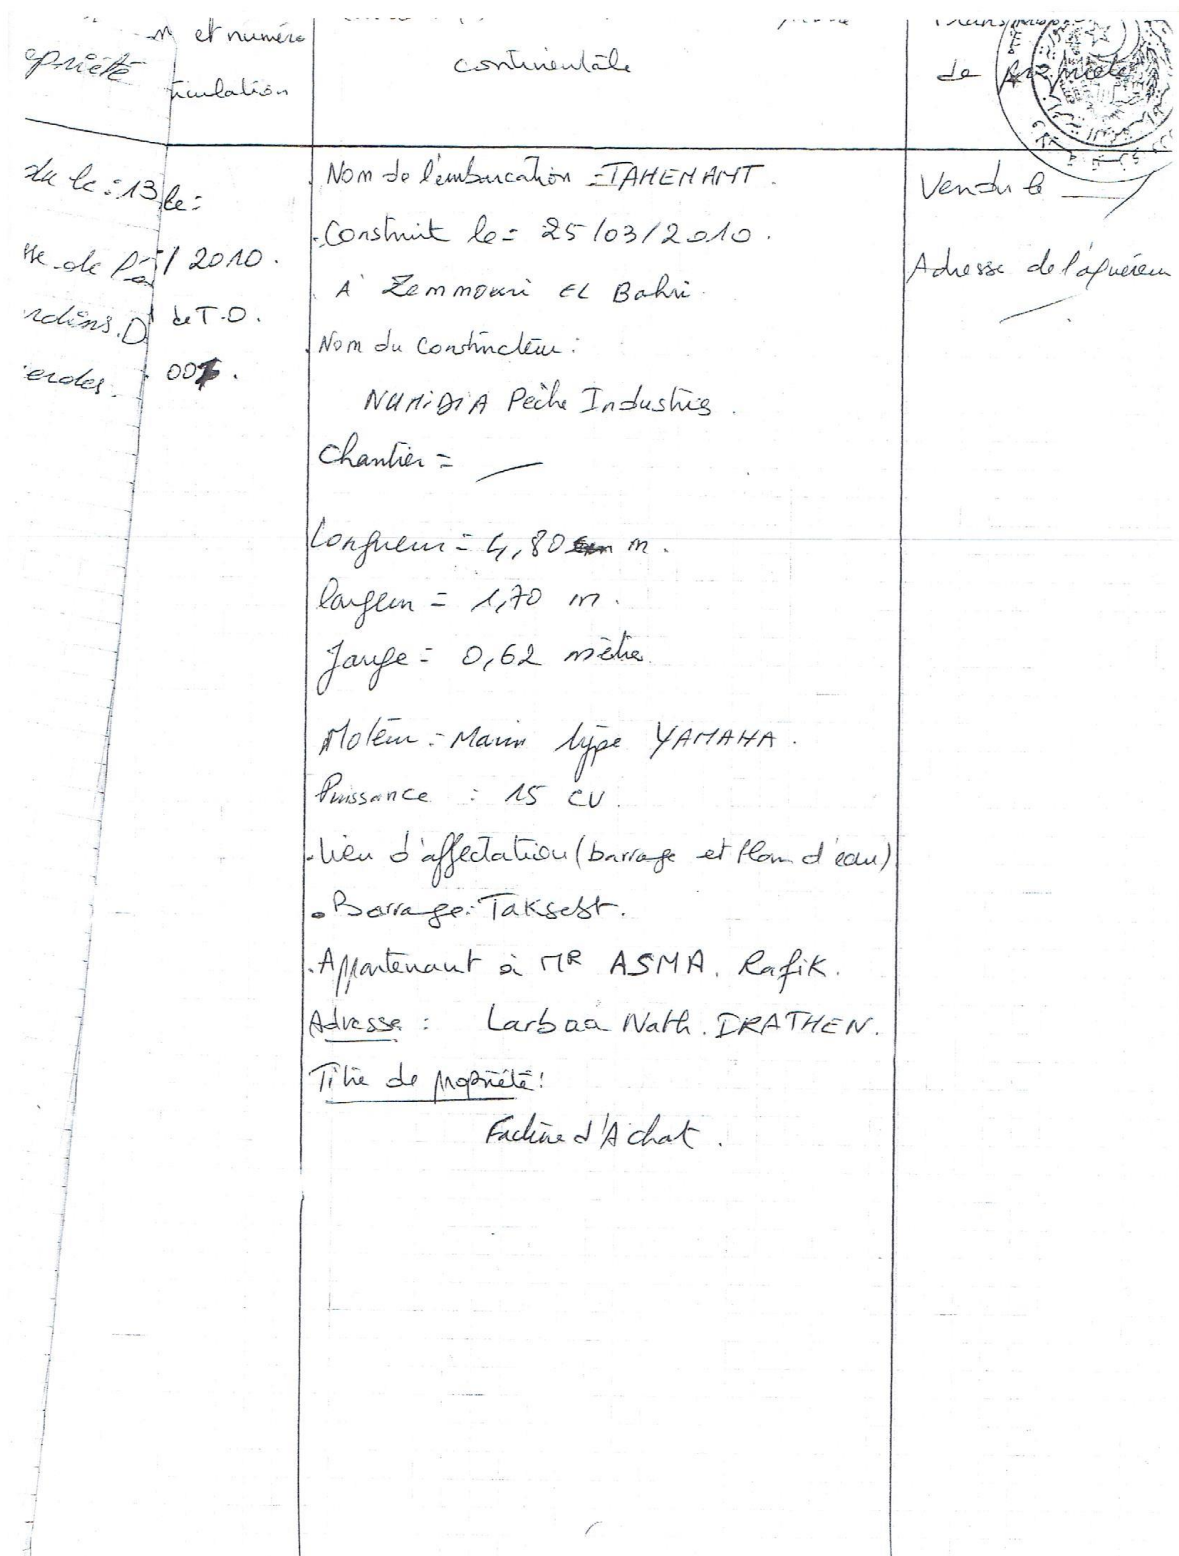 et numéro
continentale
opriété
de
du le : 13 le :
/ 2010.
de T.O.
007.
Nom de l'embarcation = TAHENAMT.
. Construit le = 25/03/2010.
A Zemmouri EL Bahri.
. Nom du Constructeur :
NUMIDIA Pêche Industries.
Chantier = —
Longueur = 4,80 m.
largeur = 1,70 m.
Jauge = 0,62 mètre.
Moteur = Marin type YAMAHA.
Puissance : 15 CV.
. Lieu d'affectation (barrage et Plan d'eau)
. Barrage : Taksebt.
. Appartenant à MR ASMA. Rafik.
Adresse : Larbaa Nath. IRATHEN.
Titre de propriété :
Facture d'Achat.
Vendu le —
Adresse de l'aquéreur
—